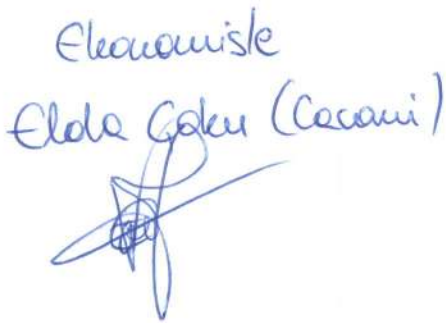 Ekonomiste
Elda Goku (Cacani)